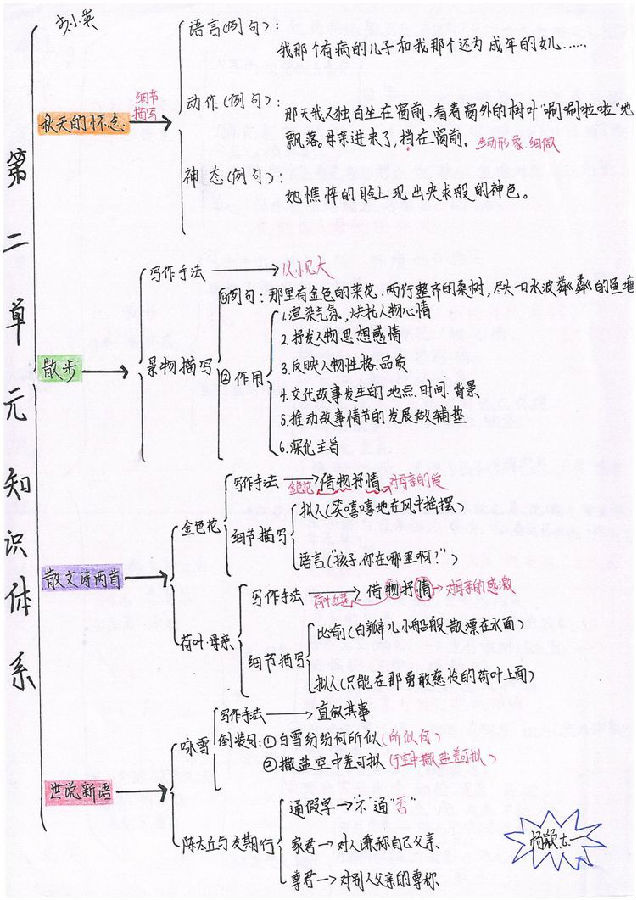 第二单元知识体系
秋天的怀念:
细节
描写
语言(例句):
我那个有病的儿子和我那个还未成年的女儿……
动作(例句):
那天我又独自坐在窗前,看着窗外的树叶"唰唰啦啦"地
飘落。母亲进来了,挡在窗前,
生动形象 细微
神态(例句):
她憔悴的脸上现出央求般的神色。
散步
写作手法 以小见大
景物描写
①例句:那里有金色的菜花,两行整齐的桑树,尽头一口水波粼粼的鱼塘
②作用
1.渲染气氛,烘托人物心情
2.抒发人物思想感情
3.反映人物性格、品质
4.交代故事发生的地点、时间、背景
5.推动故事情节的发展做铺垫
6.深化主旨
散文诗两首
金色花
写作手法 金色花 借物抒情 对母亲的爱
细节描写
拟人(笑嘻嘻地在风中摇摆)
语言("孩子,你在哪里啊?")
荷叶·母亲
写作手法 荷叶·红莲 借物抒情 对母亲的感激
细节描写
比喻(白瓣儿小船般散漂在水面)
拟人(只能在那勇敢慈怜的荷叶上面)
世说新语
咏雪
写作手法 直叙其事
倒装句:①白雪纷纷何所似(所似何)
②撒盐空中差可拟(空中撒盐差可拟)
陈太丘与友期行
通假字 "不"通"否"
家君 对人谦称自己父亲
尊君 对别人父亲的尊称